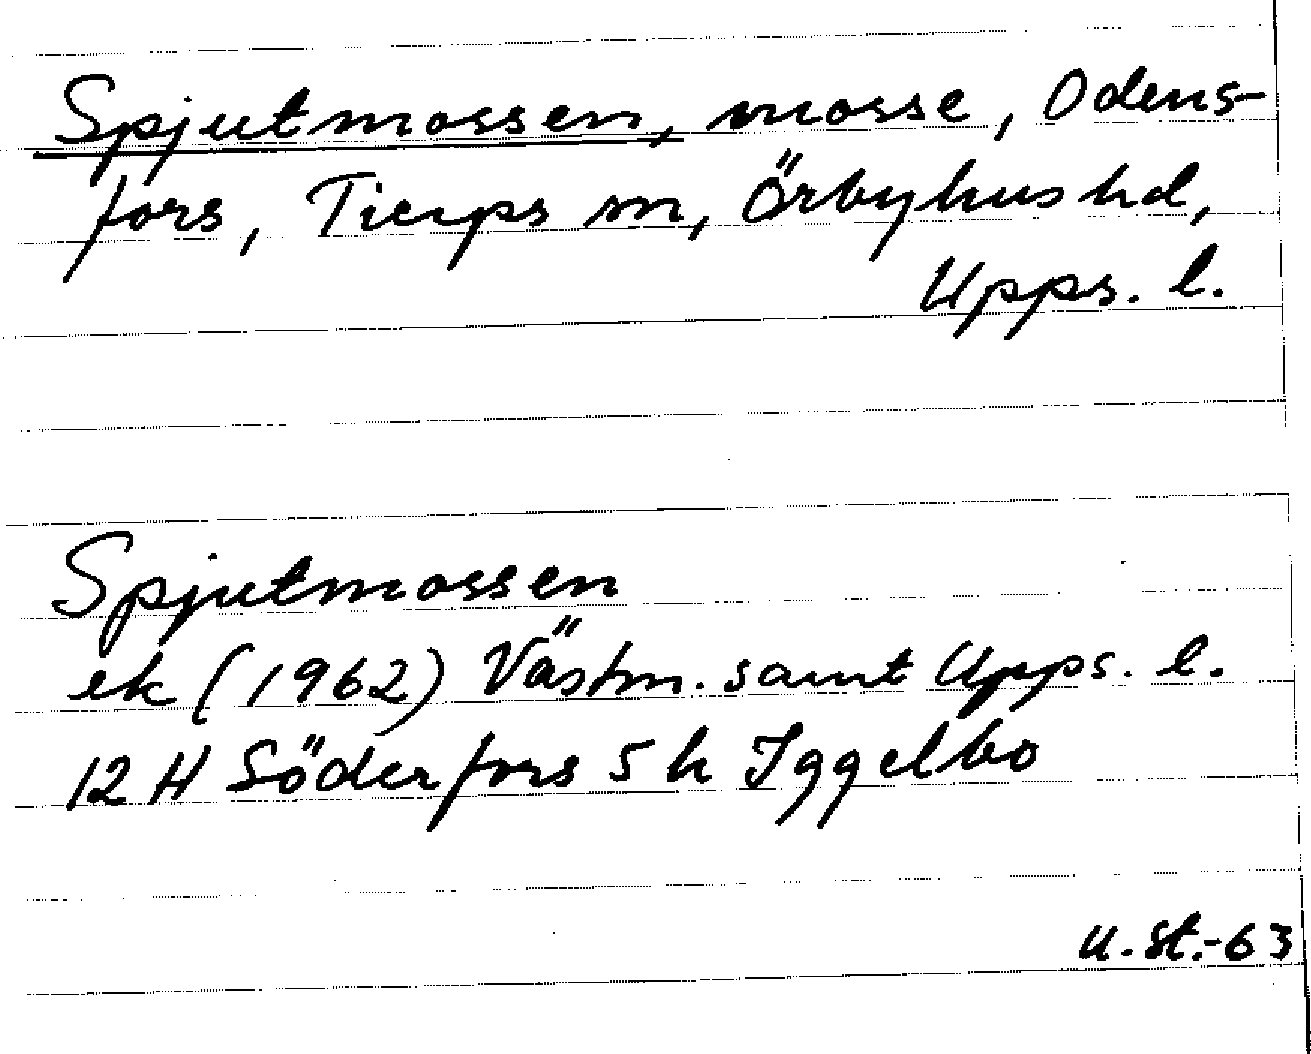 Spjutmossen, mosse, Odens-
fors, Tierps sn, Örbyhus hd,
Upps. l.
Spjutmossen
ek (1962) Västm. samt Upps. l.
12 H Söderfors 5 h Iggelbo
U. St.-63